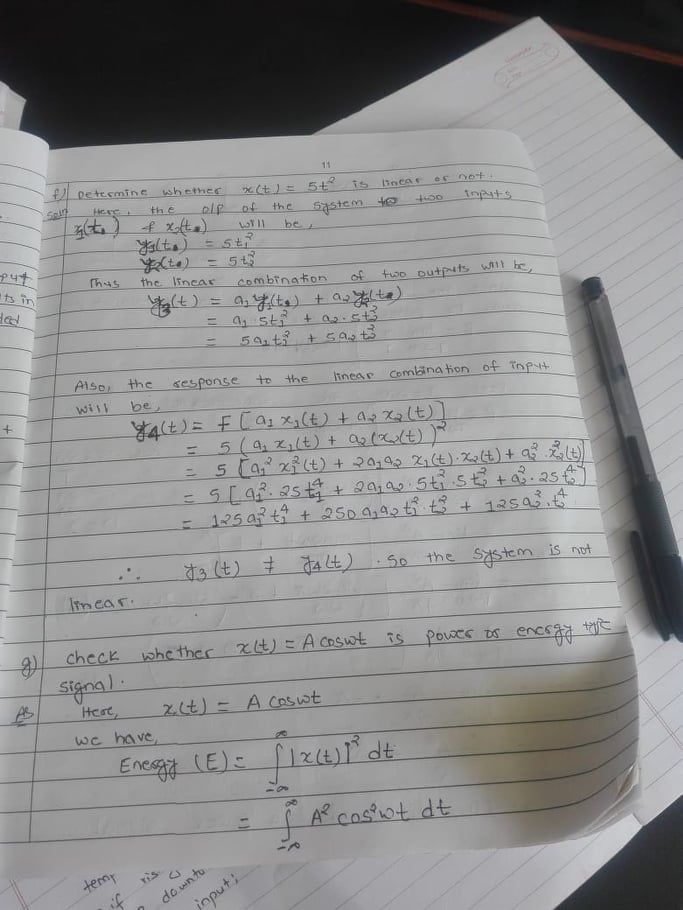 11
f) Determine whether x(t) = 5t² is linear or not.
soln Here, the o/p of the system to two inputs
x₁(t) & x₂(t) will be,
y₁(t) = 5t₁²
y₂(t) = 5t₂²
Thus the linear combination of two outputs will be,
y₃(t) = a₁ y₁(t) + a₂ y₂(t)
= a₁·5t₁² + a₂·5t₂²
= 5a₁t₁² + 5a₂t₂²
Also, the response to the linear combination of input
will be,
y₄(t) = F [a₁ x₁(t) + a₂ x₂(t)]
= 5 (a₁ x₁(t) + a₂(x₂(t))²
= 5 [a₁² x₁²(t) + 2a₁a₂ x₁(t)·x₂(t) + a₂²·x₂²(t)]
= 5 [a₁²·25t₁⁴ + 2a₁a₂·5t₁²·5t₂² + a₂²·25t₂⁴]
= 125a₁²t₁⁴ + 250a₁a₂t₁²·t₂² + 125a₂²·t₂⁴
∴ y₃(t) ≠ y₄(t). So the system is not
linear.
g) check whether x(t) = A coswt is power or energy type
signal.
Here, x(t) = A coswt
we have,
Energy (E) = ∫₋∞^∞ |x(t)|² dt
= ∫₋∞^∞ A² cos²wt dt
temp
if
downto
input;